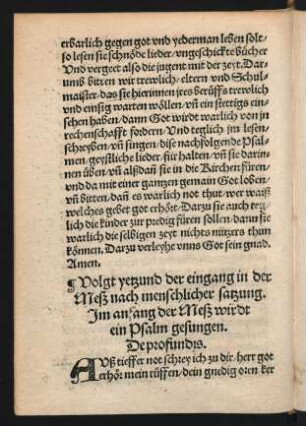 erbarlich gegen got vnd yederman leben solt-
so lesen sie schnöde lieder/ vngeschickte bücher
Vnd vergeet also die jugent mit der zeyt. Dar-
umb bitten wir trewlich/ eltern vnd Schul-
maister/ das sie hierinnen jres berüffs trewlich
vnd einsig warten wöllen/ vn̄ ein stettigs ein-
sehen haben/ dann Got wirdt warlich von jn
rechenschafft fordern/ Vnd teglich im lesen
schreyben/ vn̄ singen/ dise nachfolgende Psal-
men/ geystliche lieder/ für halten/ vn̄ sie darin-
nen üben/ vn̄ alsdan̄ sie in die Kirchen füren-
vnd da mit einer gantzen gemain Got loben/
vn̄ bitten/ dan̄ es warlich not thut/ wer waiß
welches gebet got erhört/ Darzu sie auch teg-
lich die kinder zur predig füren sollen/ dann sie
warlich die selbigen zeyt nichts nützers thun
können. Darzu verleyhe vnns Got sein gnad.
Amen.
¶ Volgt yetzund der eingang in der
Meß nach menschlicher satzung.
Im anfang der Meß wirdt
ein Psalm gesungen.
De profundis.
Auß tieffer not schrey ich zu dir/ herr got
erhör mein rüffen/ dein gnedig oren ker